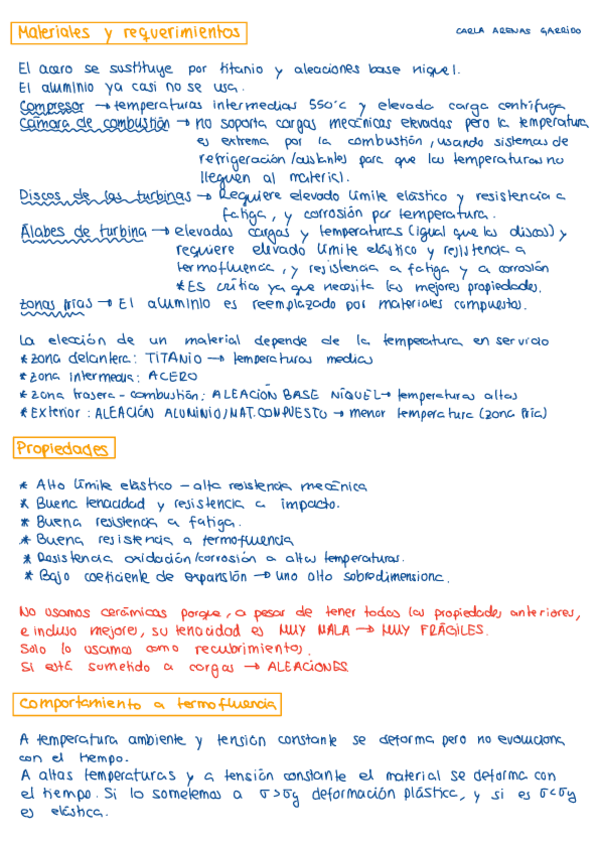 Materiales y requerimientos
CARLA ARENAS GARRIDO
El acero se sustituye por titanio y aleaciones base niquel.
El aluminio ya casi no se usa.
Compresor → temperaturas intermedias 550°C y elevada carga centrífuga
Cámara de combustión → no soporta cargas mecánicas elevadas pero la temperatura
es extrema por la combustión, usando sistemas de
refrigeración/aislantes para que las temperaturas no
lleguen al material.
Discos de las turbinas → Requiere elevado límite elástico y resistencia a
fatiga, y corrosión por temperatura.
Álabes de turbina → elevadas cargas y temperaturas (igual que los discos) y
requiere elevado límite elástico y resistencia a
termofluencia, y resistencia a fatiga y a corrosión
*Es crítico ya que necesita las mejores propiedades.
zonas frías → El aluminio es reemplazado por materiales compuestos.
La elección de un material depende de la temperatura en servicio
* zona delantera: TITANIO → temperaturas medias
* zona intermedia: ACERO
* zona trasera - combustión: ALEACIÓN BASE NÍQUEL → temperaturas altas
* EXTERIOR: ALEACIÓN ALUMINIO/MAT. COMPUESTO → menor temperatura (zona fría)
Propiedades
* Alto límite elástico - alta resistencia mecánica
* Buena tenacidad y resistencia a impacto.
* Buena resistencia a fatiga.
* Buena resistencia a termofluencia
* Resistencia oxidación/corrosión a altas temperaturas.
* Bajo coeficiente de expansión → uno alto sobredimensiona.
No usamos cerámicas porque, a pesar de tener todas las propiedades anteriores,
e incluso mejores, su tenacidad es MUY MALA → MUY FRÁGILES.
Solo lo usamos como recubrimientos.
Si esté sometido a cargas → ALEACIONES
Comportamiento a termofluencia
A temperatura ambiente y tensión constante se deforma pero no evoluciona
con el tiempo.
A altas temperaturas y a tensión constante el material se deforma con
el tiempo. Si lo sometemos a σ>σy deformación plástica, y si es σ<σy
es elástica.